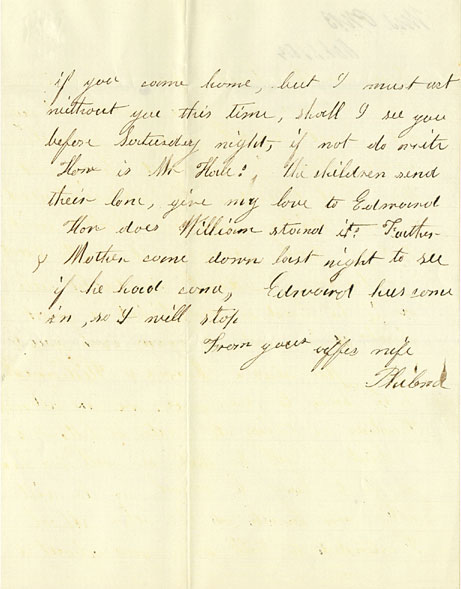 if you come home, but I must act
without you this time, shall I see you
before Saturday night, if not do write
How is Mr The children send
their love, give my love to Edmund
How does William stand it? Father
& Mother came down last night to see
if he had come, Edward has come
in, so I will stop
From your affec wife